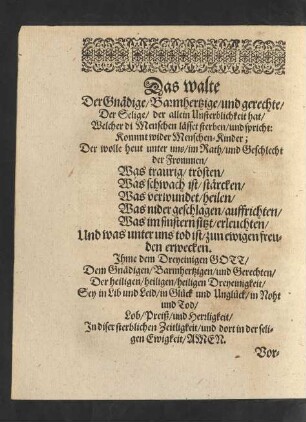 Das walte
Der Gnädige/ Barmhertzige/ und gerechte/
Der Selige/ der allein Unsterblichkeit hat/
Welcher di Menschen lässet sterben/ und spricht:
Kommt wider Menschen-Kinder;
Der wolle heut unter uns/ im Rath/ und Geschlecht
der Frommen/
Was traurig/ trösten/
Was schwach ist/ stärcken/
Was verwundet/ heilen/
Was nider geschlagen/ auffrichten/
Was im finstern sitzt/ erleuchten/
Und was unter uns tod ist/ zum ewigen freu-
den erwecken.
Ihme dem Dreyeinigen GOTT/
Dem Gnädigen/ Barmhertzigen/ und Gerechten/
Der heiligen/ heiligen/ heiligen Dreyeinigkeit/
Sey in Lib und Leid/ in Glück und Unglück/ in Noht
und Tod/
Lob/ Preiß/ und Herrligkeit/
In diser sterblichen Zeitligkeit/ und dort in der seli-
gen Ewigkeit/ AMEN.
Vor-